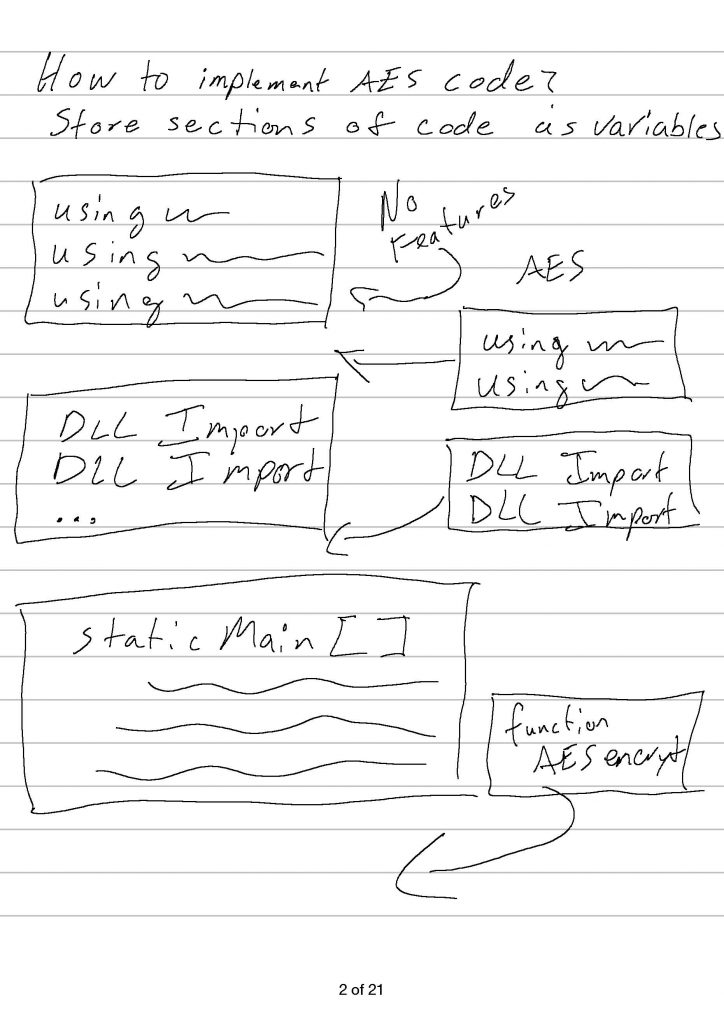 How to implement AES code?
Store sections of code as variables
using
using
using
No
Features
AES
using
using
DLL Import
DLL Import
...
DLL Import
DLL Import
static Main []
function
AES encryt
2 of 21